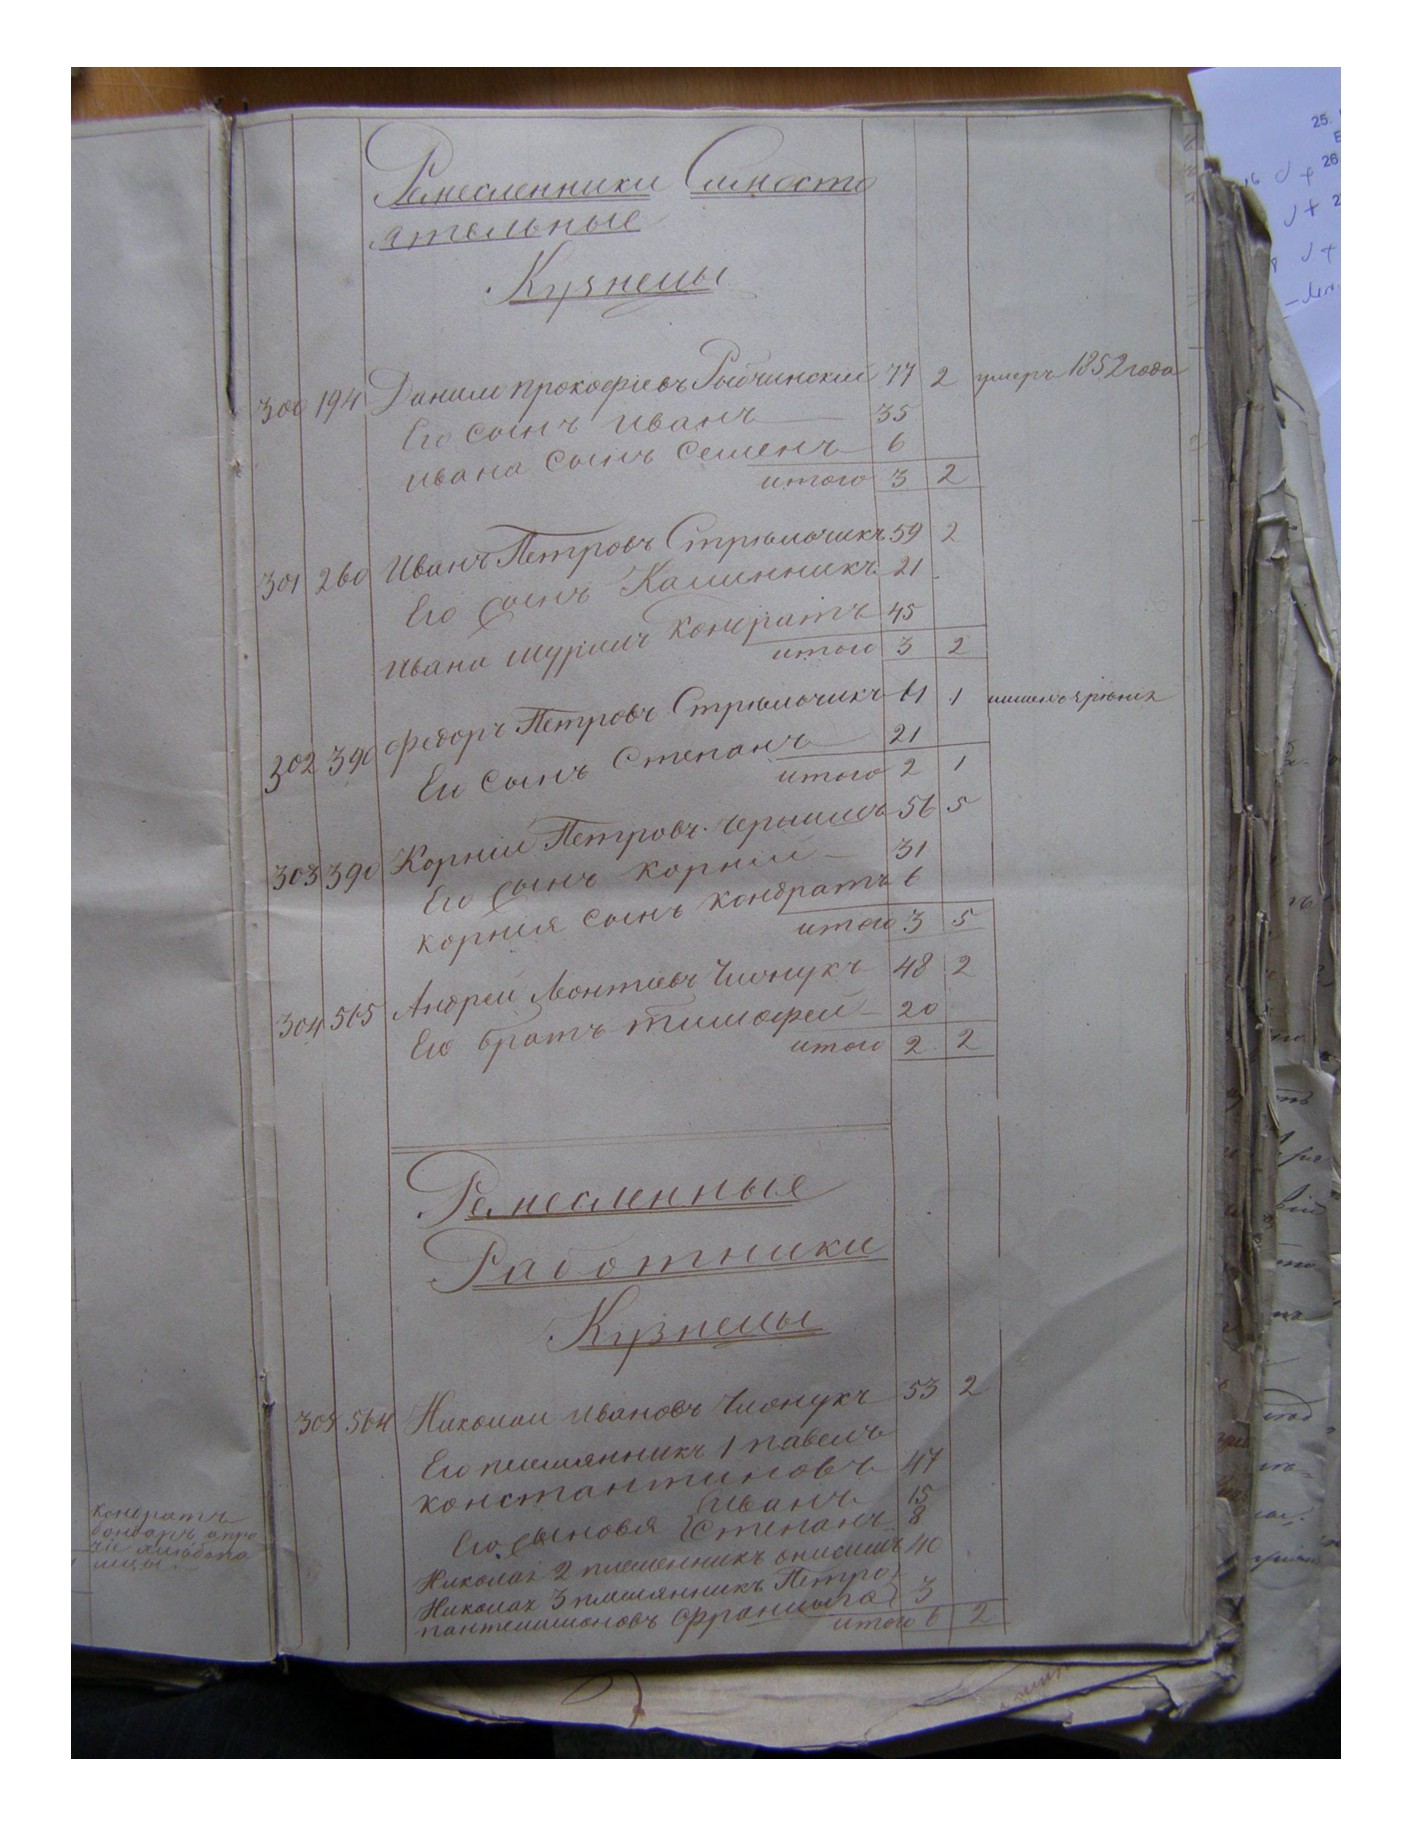 Ремесленники Самосто
ятельные
Кузнецы
300 194 Данило Прокофіевъ Рыбчинский 77 2 умеръ 1852 года
Его сынъ иванъ 35
ивана сынъ Семенъ 6
итого 3 2
301 260 Иванъ Петровъ Стрѣльчикъ 59 2
Его сынъ Калинникъ 21
Ивана шуринъ Кондратъ 45
итого 3 2
302 390 Федоръ Петровъ Стрѣльчикъ 61 1
Его сынъ Степанъ 21
итого 2 1
303 390 Корній Петровъ 56 5
Его сынъ Корній 31
Корнія сынъ Кондратъ 6
итого 3 5
304 565 Андрей Леонтіевъ Члонукъ 48 2
Его братъ тимофей 20
итого 2 2
Ремесленные
Работники
Кузнецы
305 564 Николай ивановъ Члонукъ 53 2
Его племянникъ 1 павелъ
константиновъ 47
Его сыновья Иванъ 15
Степанъ 8
Николая 2 племенникъ онисимъ 40
Николая 3 племянникъ Петро
пантелимоновъ 3
итого 6 2
кондратъ
бондарь
25.
26
16